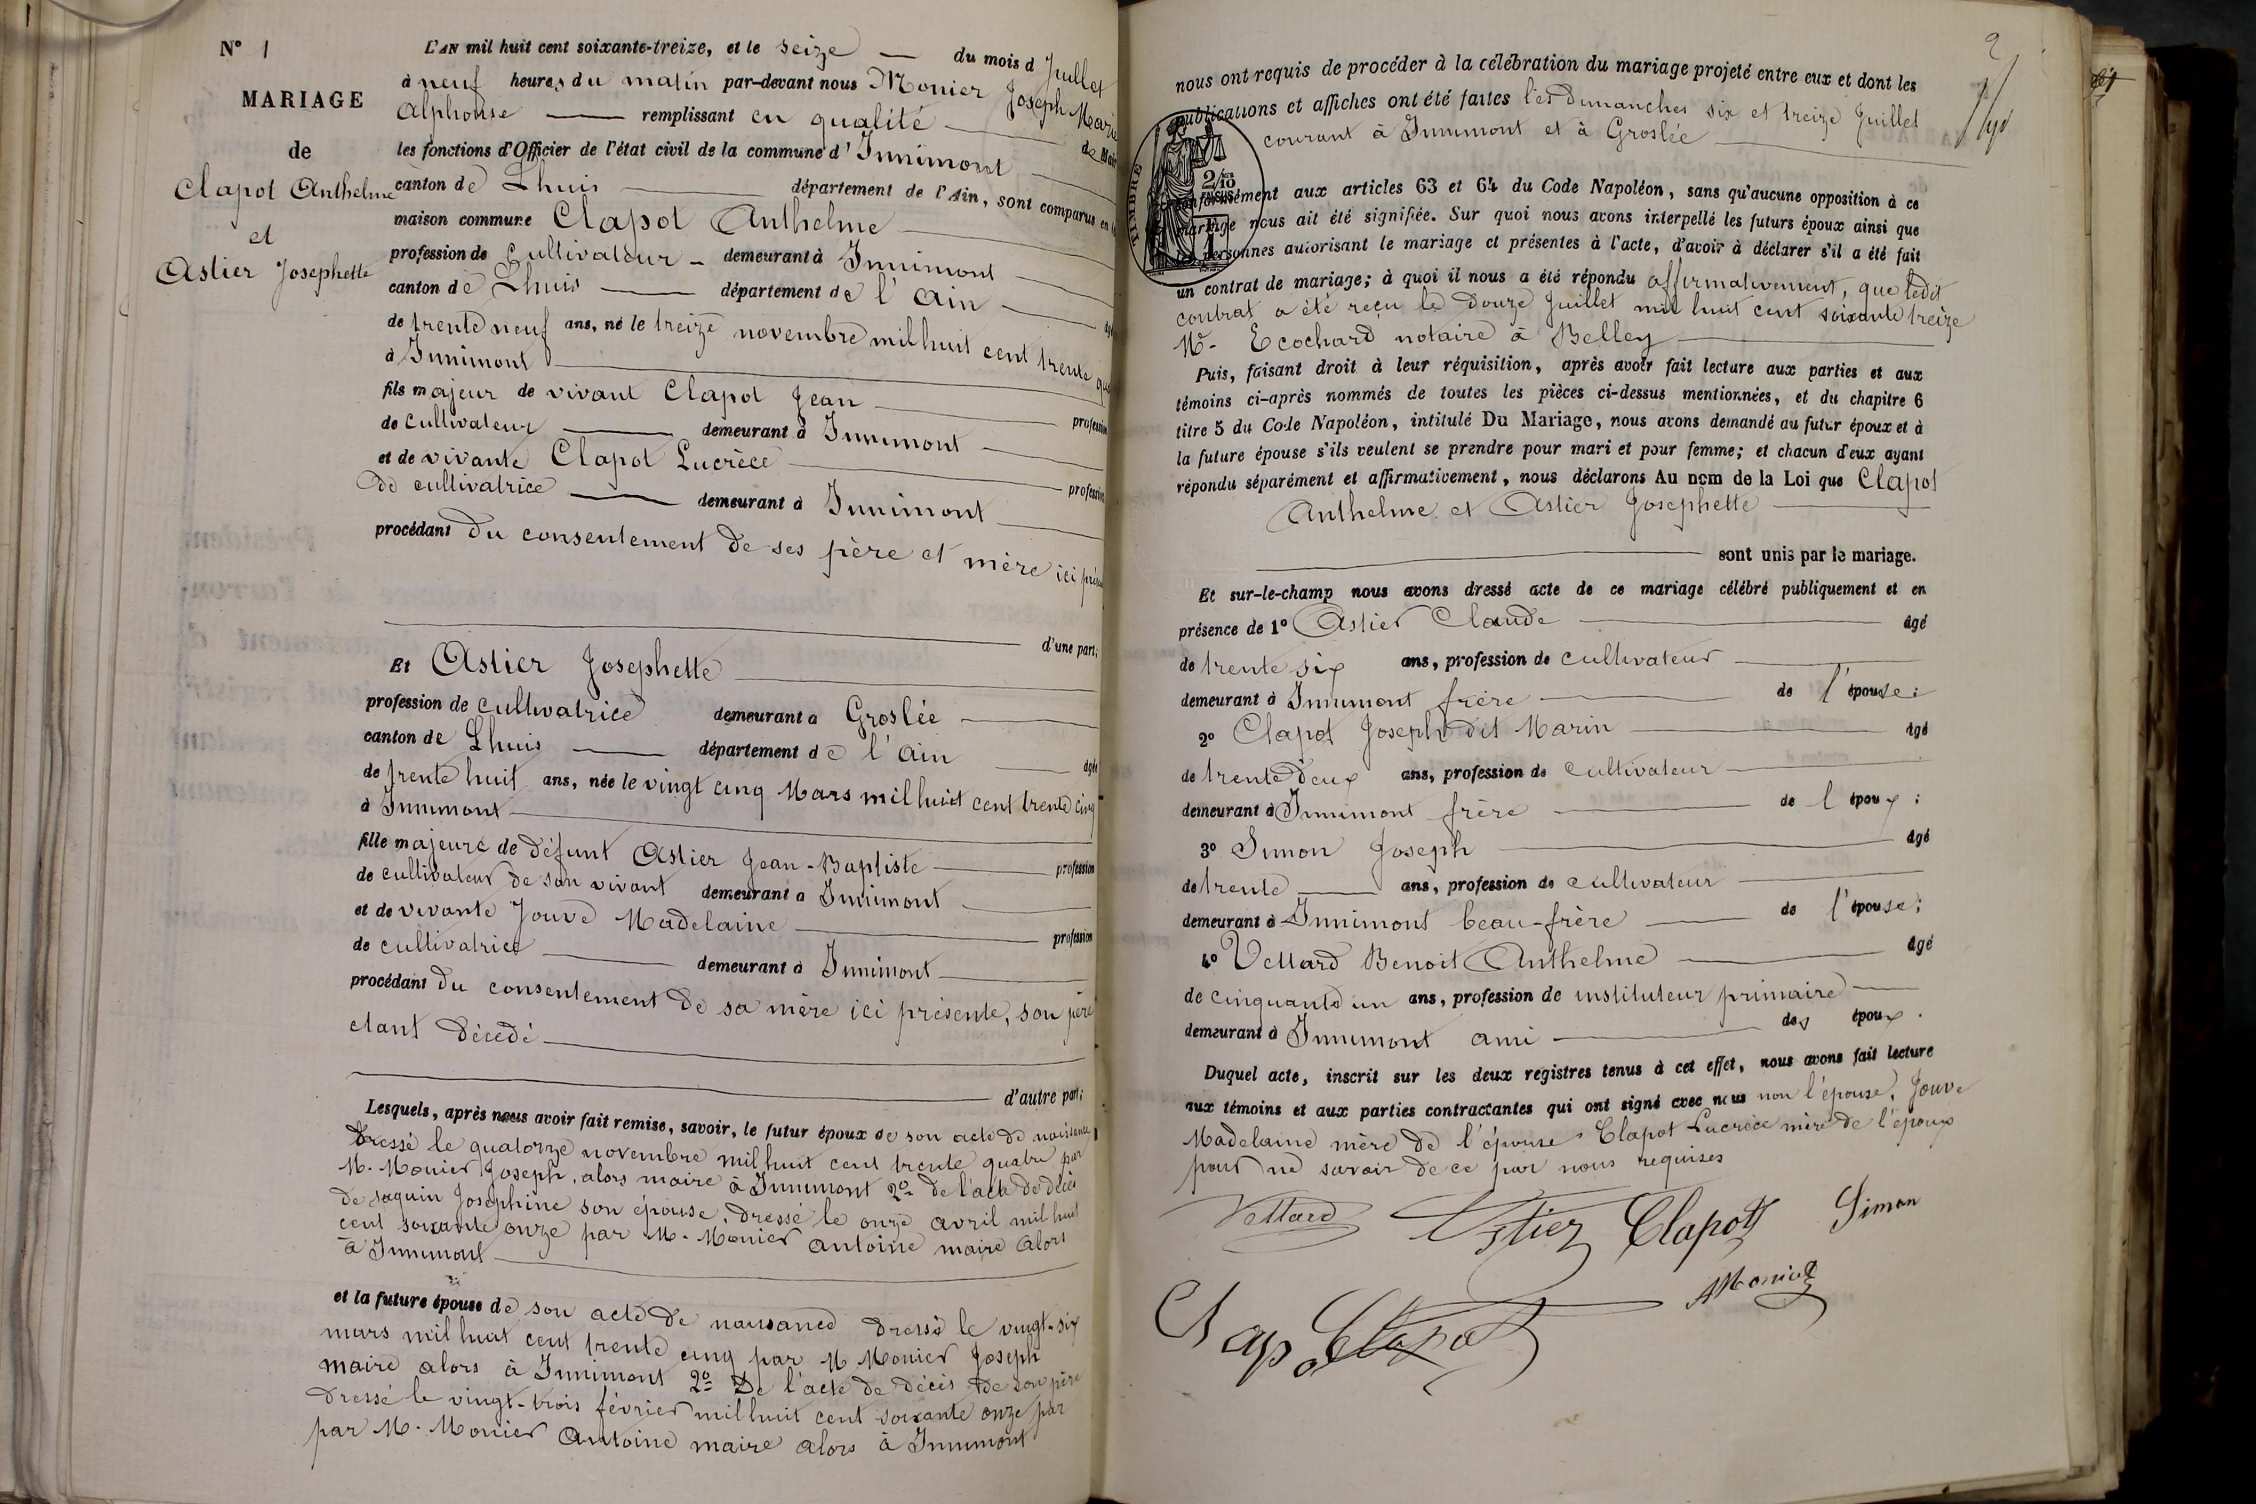 N° 1
MARIAGE
de
Clapot Anthelme
et
Astier Josephette
L'AN mil huit cent soixante-treize, et le seize du mois d Juillet
à neuf heures du matin par-devant nous Monier Joseph Marie
Alphonse remplissant en qualité de Maire
les fonctions d'Officier de l'état civil de la commune d' Innimont
canton de Lhuis département de l'Ain, sont comparus en la
maison commune Clapot Anthelme
profession de Cultivateur demeurant à Innimont
canton de Lhuis département de l'Ain âgé
de trente neuf ans, né le treize novembre mil huit cent trente
à Innimont
fils majeur de vivant Clapot Jean profession
de cultivateur demeurant à Innimont
et de vivante Clapot Lucrèce profession
de cultivatrice demeurant à Innimont
procédant du consentement de ses père et mère ici
d'une part;
Et Astier Josephette
profession de cultivatrice demeurant a Groslée
canton de Lhuis département de l'Ain âgée
de trente huit ans, née le vingt cinq Mars mil huit cent trente cinq
à Innimont
fille majeure de défunt Astier Jean-Baptiste profession
de cultivateur de son vivant demeurant a Innimont
et de vivante Jouve Madelaine profession
de cultivatrice demeurant à Innimont
procédant du consentement de sa mère ici présente, son père
étant décédé
d'autre part;
Lesquels, après nous avoir fait remise, savoir, le futur époux de son acte de naissance
dressé le quatorze novembre mil huit cent trente quatre par
M. Monier Joseph, alors maire à Innimont 2° de l'acte de décès
de Jaquin Joséphine son épouse, dressé le onze avril mil huit
cent soixante onze par M. Monier Antoine maire alors
à Innimont
et la future épouse de son acte de naissance dressé le vingt-six
mars mil huit cent trente cinq par M Monier Joseph
maire alors à Innimont 2° De l'acte de décès de son père
dressé le vingt-trois février mil huit cent soixante onze par
par M. Monier Antoine maire alors à Innimont
2
nous ont requis de procéder à la célébration du mariage projeté entre eux et dont les
publications et affiches ont été faites les dimanches six et treize Juillet
courant à Innimont et à Groslée
TIMBRE
2/10
conformément aux articles 63 et 64 du Code Napoléon, sans qu'aucune opposition à ce
mariage nous ait été signifiée. Sur quoi nous avons interpellé les futurs époux ainsi que
les personnes autorisant le mariage et présentes à l'acte, d'avoir à déclarer s'il a été fait
un contrat de mariage; à quoi il nous a été répondu affirmativement, que ledit
contrat a été reçu le douze Juillet mil huit cent soixante treize
Me Ecochard notaire à Belley
Puis, faisant droit à leur réquisition, après avoir fait lecture aux parties et aux
témoins ci-après nommés de toutes les pièces ci-dessus mentionnées, et du chapitre 6
titre 5 du Code Napoléon, intitulé Du Mariage, nous avons demandé au futur époux et à
la future épouse s'ils veulent se prendre pour mari et pour femme; et chacun d'eux ayant
répondu séparément et affirmativement, nous déclarons Au nom de la Loi que Clapot
Anthelme et Astier Josephette
sont unis par le mariage.
Et sur-le-champ nous avons dressé acte de ce mariage célébré publiquement et en
présence de 1° Astier Claude âgé
de trente six ans, profession de cultivateur
demeurant à Innimont frère de l'épouse;
2° Clapot Joseph dit Marin âgé
de trente deux ans, profession de cultivateur
demeurant à Innimont frère de l époux;
3° Simon Joseph âgé
de trente ans, profession de cultivateur
demeurant à Innimont beau-frère de l'épouse;
4° Vettard Benoit Anthelme âgé
de cinquante un ans, profession de instituteur primaire
demeurant à Innimont ami des époux.
Duquel acte, inscrit sur les deux registres tenus à cet effet, nous avons fait lecture
aux témoins et aux parties contractantes qui ont signé avec nous non l'épouse, Jouve
Madelaine mère de l'épouse, Clapot Lucrèce mère de l'époux
pour ne savoir de ce par nous requises
Vettard Astier Clapot Simon
Clapot AMonier